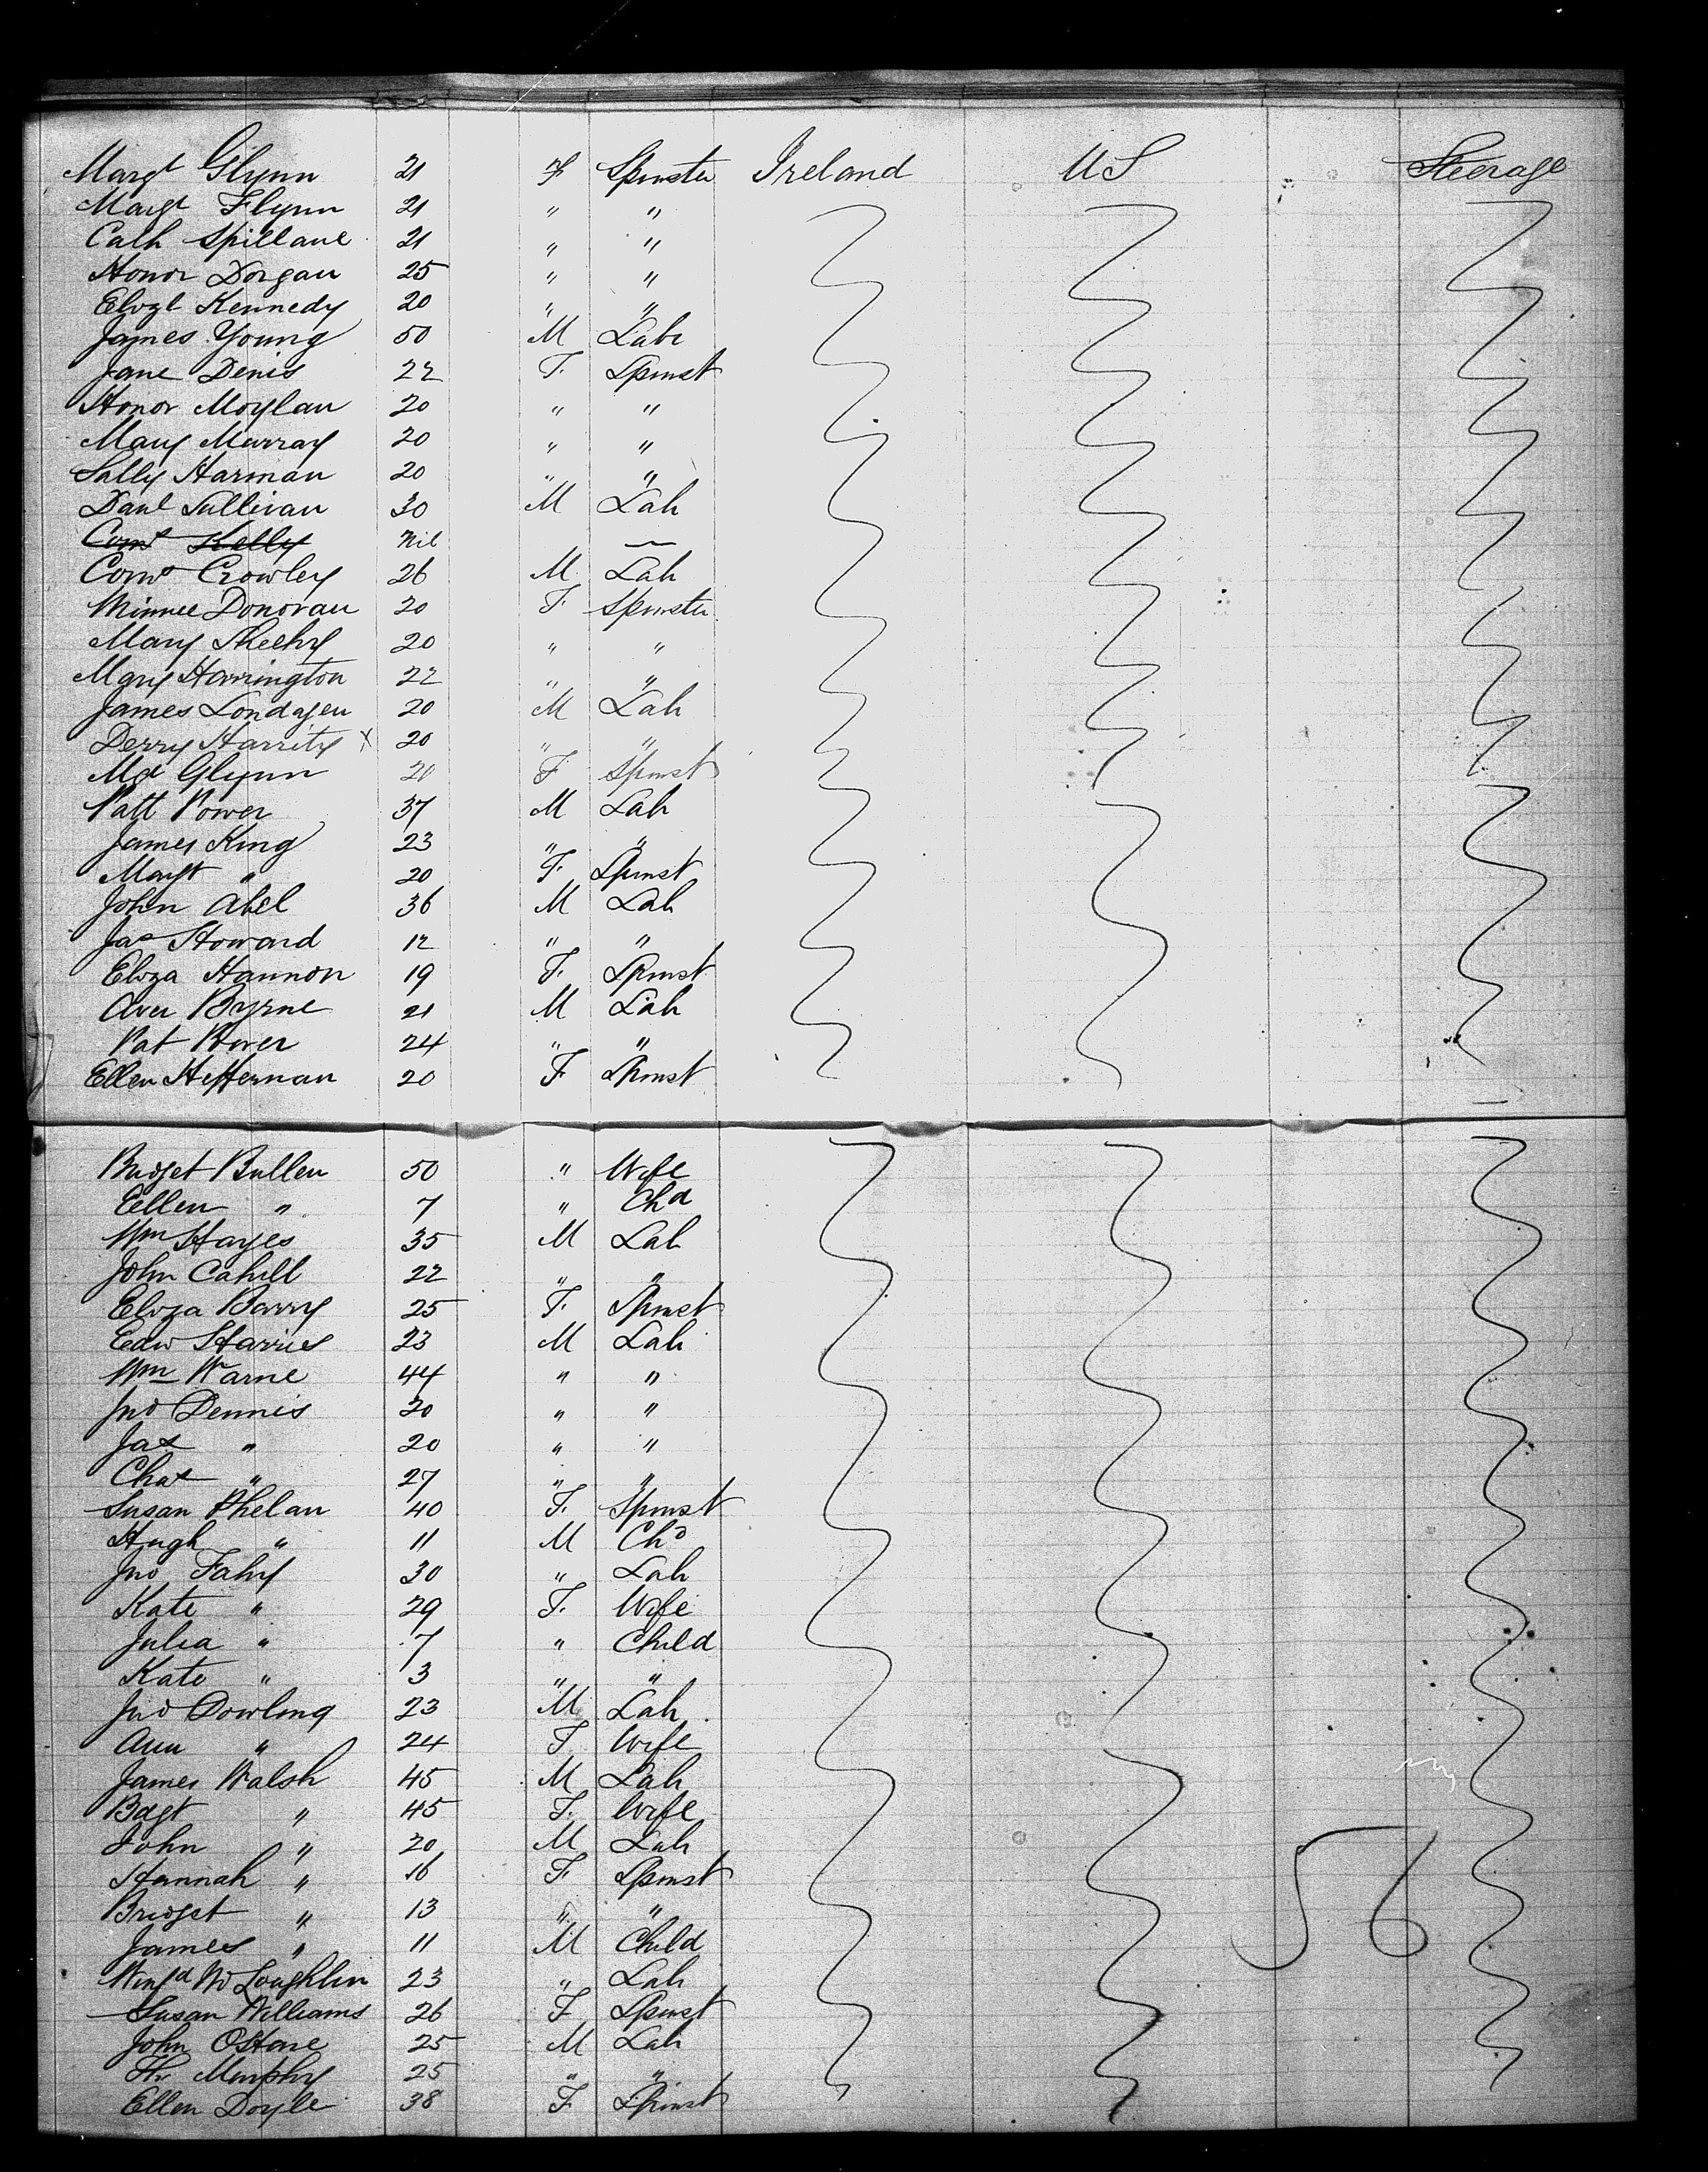 Margt Glynn 21 F Spinster Ireland US Steerage
Margt Flynn 21 " "
Cath Spillane 21 " "
Honor Dorgan 25 " "
Elizt Kennedy 20 " "
James Young 50 M Labr
Jane Denis 22 F. Spinst
Honor Moylan 20 " "
Mary Murray 20 " "
Sally Harman 20 " "
Danl Sullivan 30 M Lab
Corns Kelly Nil —
Corns Crowley 26 M Lab
Minnee Donovan 20 F. Spinster
Mary Sheehy 20 " "
Mary Harrington 22 " "
James Londajen 20 M Lab
Derry Harrity X 20 " "
Md Glynn 20 F Spinst
Patt Power 37 M Lab
James King 23 " "
Margt " 20 F. Spinst
John Abel 36 M Lab
Jas Howard 12 " "
Eliza Hannon 19 F. Spinst
Byrne 21 M Lab
Pat Power 24 " "
Ellen Heffernan 20 F Spinst
Bridget Bullen 50 " Wife
Eellen " 7 " Chd
Wm Hayes 35 M Lab
John Cahill 22 " "
Eliza Barry 25 F. Spinst
Edw Harries 23 M Lab
Wm Warne 44 " "
Jno Dennis 20 " "
Jas " 20 " "
Chas " 27 " "
Susan Phelan 40 F. Spinst
Hugh " 11 M Chd
Jno Fahy 30 " Lab
Kate " 29 F. Wife
Julia " 7 " Child
Kate " 3 " "
Jno Dowling 23 M Lab
Ann " 24 F Wife
James Walsh 45 M Lab
Bdgt " 45 F. Wife
John " 20 M Lab
Hannah " 16 F Spinst
Bridget " 13 " "
James " 11 M Child
56
McLoughlin 23 " Lab
Susan Williams 26 F Spinst
John 25 M Lab
Murphy 25 " "
Ellen Doyle 38 F Spinst